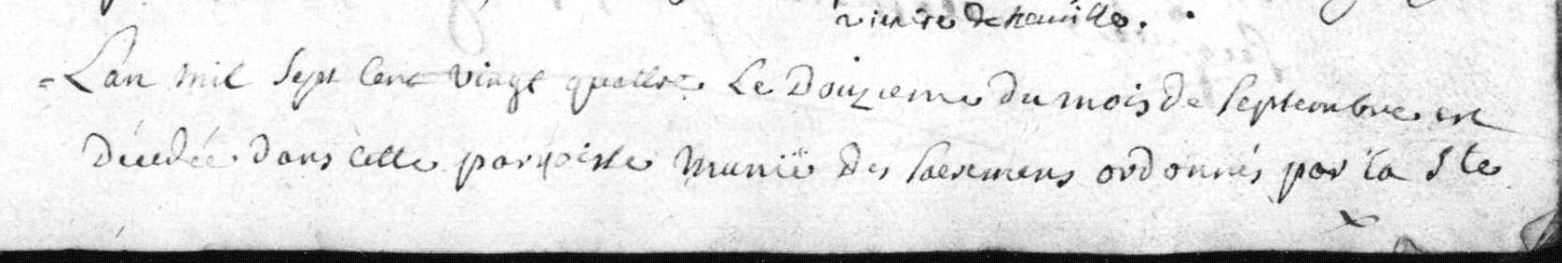 vicaire de
= Lan mil sept cent vingt quattre Le Douzieme Du mois De Septembre est
Décédée dans cette parroisse Munië Des sacremens ordonnés par la Ste
x